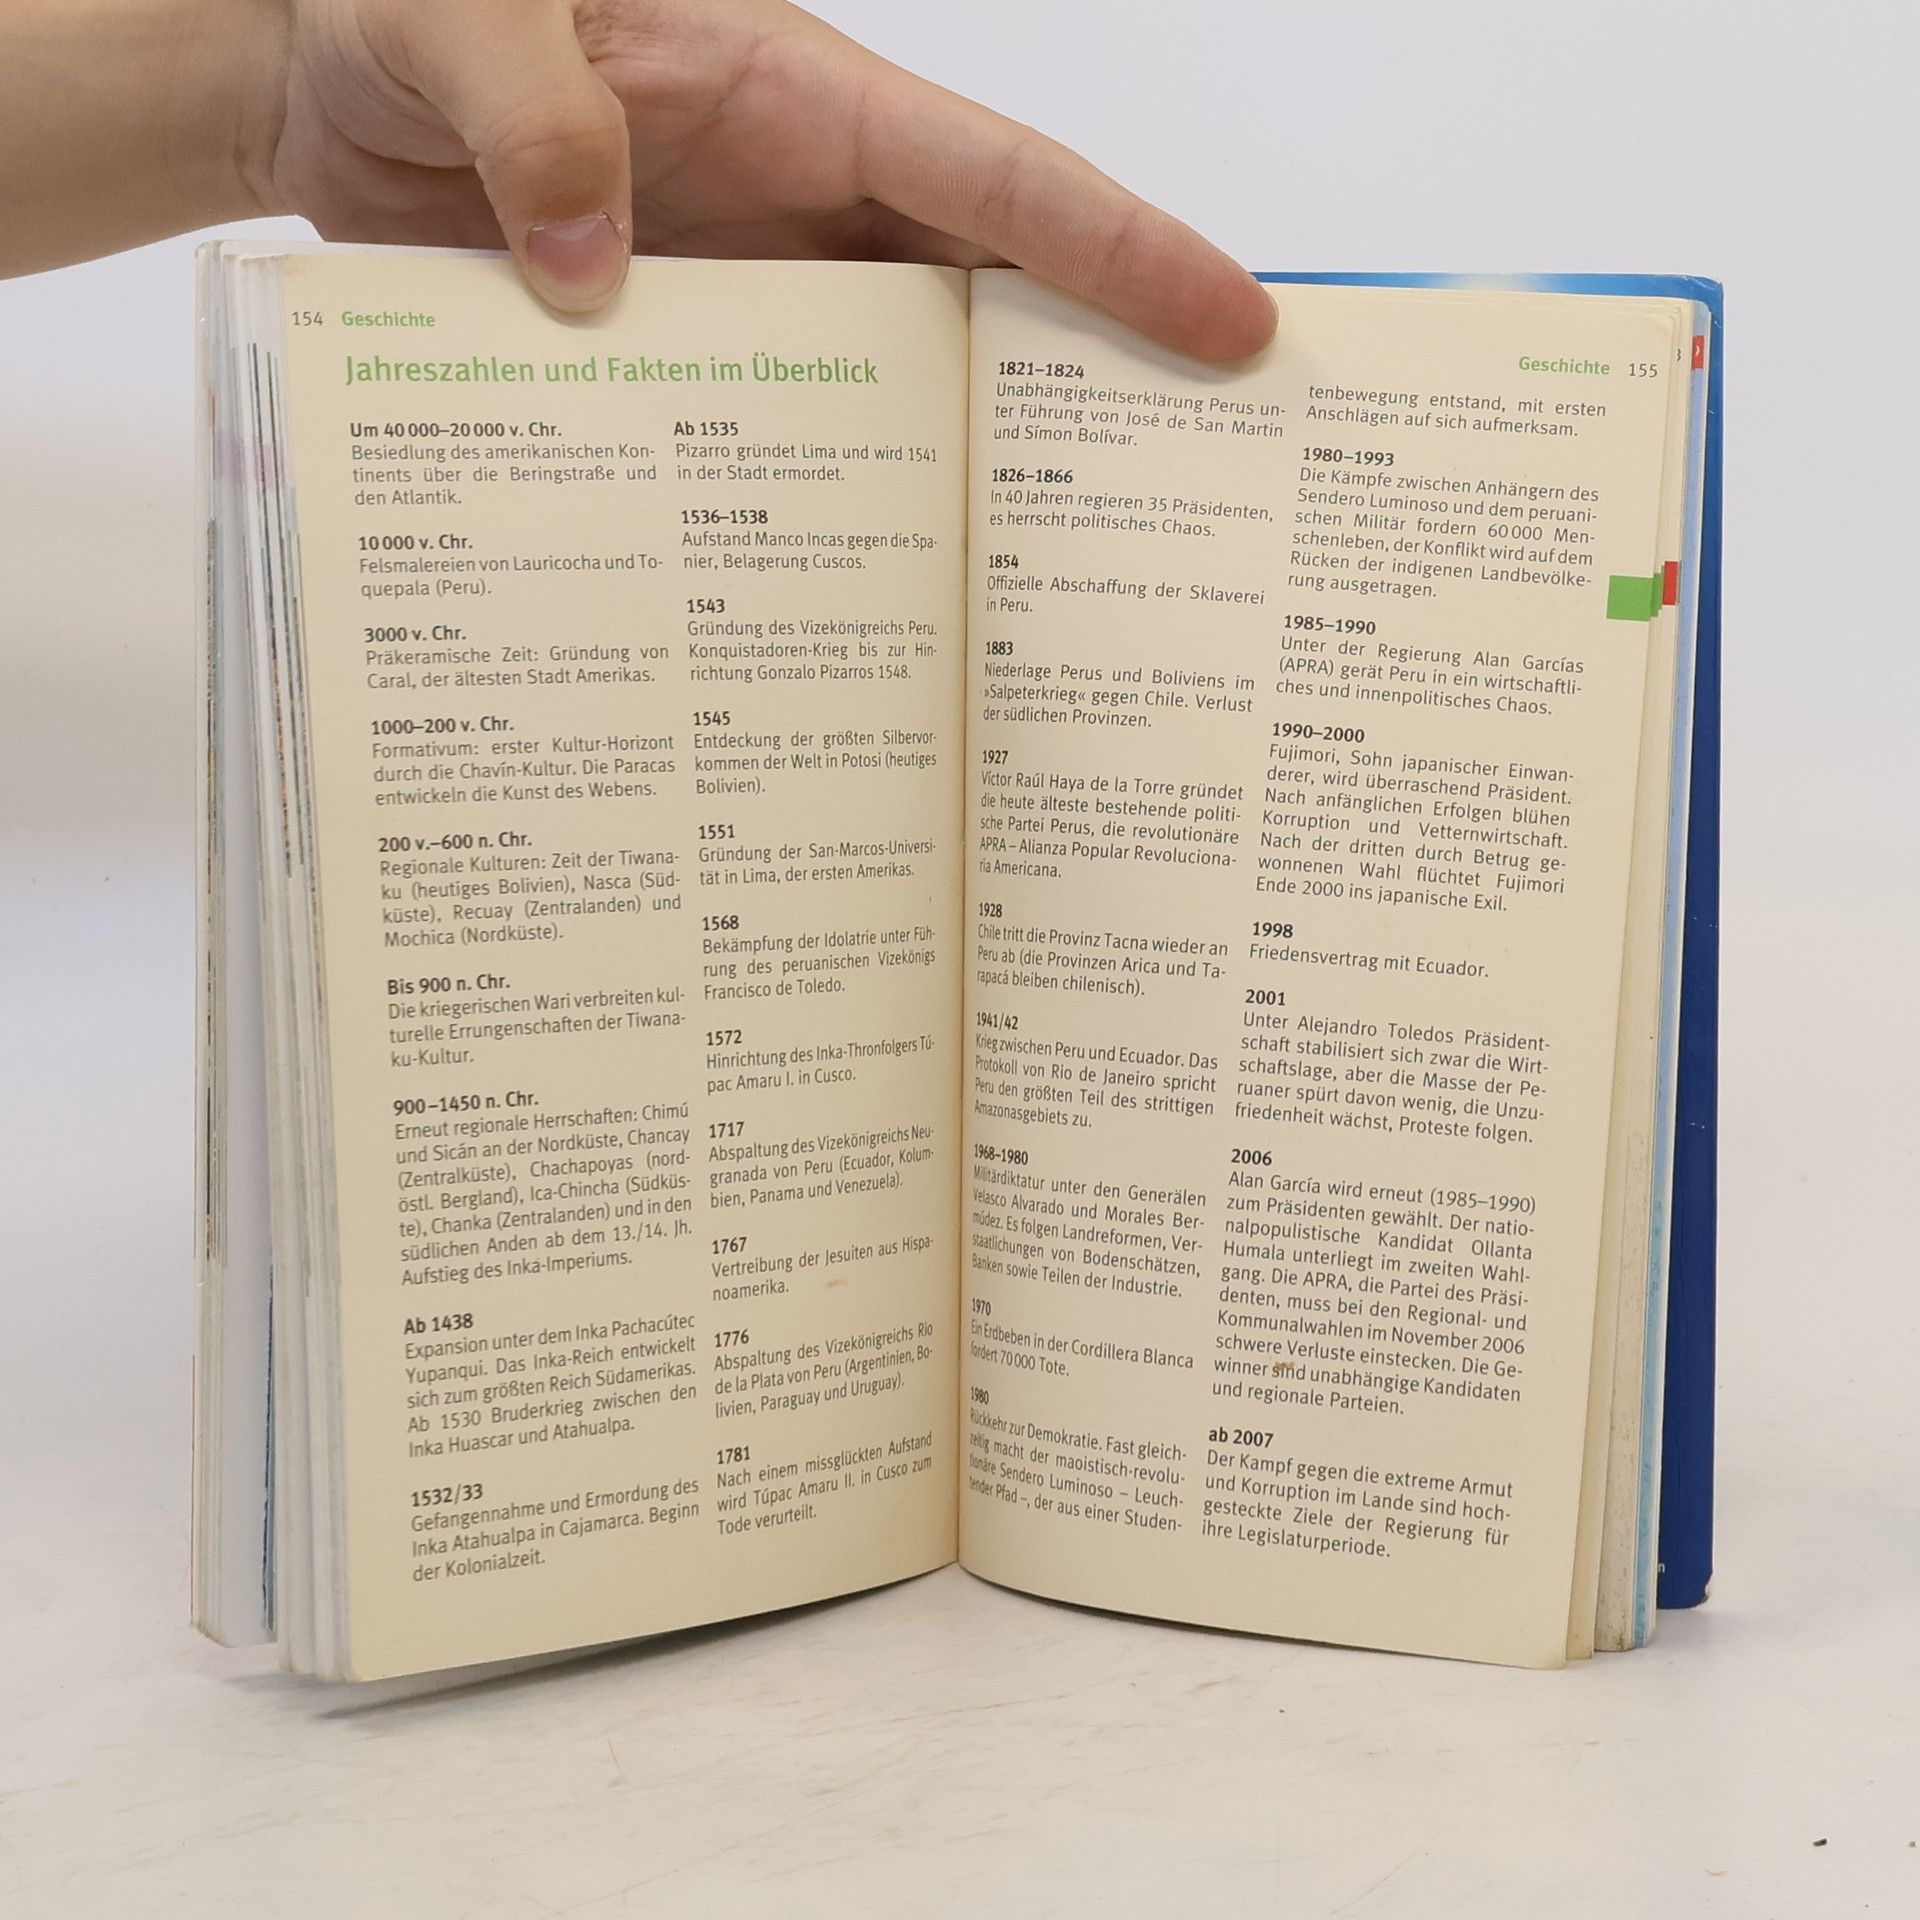 154 Geschichte
Jahreszahlen und Fakten im Überblick
Um 40 000–20 000 v. Chr.
Besiedlung des amerikanischen Kon-
tinents über die Beringstraße und
den Atlantik.
10 000 v. Chr.
Felsmalereien von Lauricocha und To-
quepala (Peru).
3000 v. Chr.
Präkeramische Zeit: Gründung von
Caral, der ältesten Stadt Amerikas.
1000–200 v. Chr.
Formativum: erster Kultur-Horizont
durch die Chavín-Kultur. Die Paracas
entwickeln die Kunst des Webens.
200 v.–600 n. Chr.
Regionale Kulturen: Zeit der Tiwana-
ku (heutiges Bolivien), Nasca (Süd-
küste), Recuay (Zentralanden) und
Mochica (Nordküste).
Bis 900 n. Chr.
Die kriegerischen Wari verbreiten kul-
turelle Errungenschaften der Tiwana-
ku-Kultur.
900–1450 n. Chr.
Erneut regionale Herrschaften: Chimú
und Sicán an der Nordküste, Chancay
(Zentralküste), Chachapoyas (nord-
östl. Bergland), Ica-Chincha (Südküs-
te), Chanka (Zentralanden) und in den
südlichen Anden ab dem 13./14. Jh.
Aufstieg des Inka-Imperiums.
Ab 1438
Expansion unter dem Inka Pachacútec
Yupanqui. Das Inka-Reich entwickelt
sich zum größten Reich Südamerikas.
Ab 1530 Bruderkrieg zwischen den
Inka Huascar und Atahualpa.
1532/33
Gefangennahme und Ermordung des
Inka Atahualpa in Cajamarca. Beginn
der Kolonialzeit.
Ab 1535
Pizarro gründet Lima und wird 1541
in der Stadt ermordet.
1536–1538
Aufstand Manco Incas gegen die Spa-
nier, Belagerung Cuscos.
1543
Gründung des Vizekönigreichs Peru.
Konquistadoren-Krieg bis zur Hin-
richtung Gonzalo Pizarros 1548.
1545
Entdeckung der größten Silbervor-
kommen der Welt in Potosi (heutiges
Bolivien).
1551
Gründung der San-Marcos-Universi-
tät in Lima, der ersten Amerikas.
1568
Bekämpfung der Idolatrie unter Füh-
rung des peruanischen Vizekönigs
Francisco de Toledo.
1572
Hinrichtung des Inka-Thronfolgers Tú-
pac Amaru I. in Cusco.
1717
Abspaltung des Vizekönigreichs Neu-
granada von Peru (Ecuador, Kolum-
bien, Panama und Venezuela).
1767
Vertreibung der Jesuiten aus Hispa-
noamerika.
1776
Abspaltung des Vizekönigreichs Rio
de la Plata von Peru (Argentinien, Bo-
livien, Paraguay und Uruguay).
1781
Nach einem missglückten Aufstand
wird Túpac Amaru II. in Cusco zum
Tode verurteilt.
Geschichte 155
1821–1824
Unabhängigkeitserklärung Perus un-
ter Führung von José de San Martin
und Símon Bolívar.
1826–1866
In 40 Jahren regieren 35 Präsidenten,
es herrscht politisches Chaos.
1854
Offizielle Abschaffung der Sklaverei
in Peru.
1883
Niederlage Perus und Boliviens im
»Salpeterkrieg« gegen Chile. Verlust
der südlichen Provinzen.
1927
Víctor Raúl Haya de la Torre gründet
die heute älteste bestehende politi-
sche Partei Perus, die revolutionäre
APRA – Alianza Popular Revoluciona-
ria Americana.
1928
Chile tritt die Provinz Tacna wieder an
Peru ab (die Provinzen Arica und Ta-
rapacá bleiben chilenisch).
1941/42
Krieg zwischen Peru und Ecuador. Das
Protokoll von Rio de Janeiro spricht
Peru den größten Teil des strittigen
Amazonasgebiets zu.
1968–1980
Militärdiktatur unter den Generälen
Velasco Alvarado und Morales Ber-
múdez. Es folgen Landreformen, Ver-
staatlichungen von Bodenschätzen,
Banken sowie Teilen der Industrie.
1970
Ein Erdbeben in der Cordillera Blanca
fordert 70 000 Tote.
1980
Rückkehr zur Demokratie. Fast gleich-
zeitig macht der maoistisch-revolu-
tionäre Sendero Luminoso – Leuch-
tender Pfad –, der aus einer Studen-
tenbewegung entstand, mit ersten
Anschlägen auf sich aufmerksam.
1980–1993
Die Kämpfe zwischen Anhängern des
Sendero Luminoso und dem peruani-
schen Militär fordern 60 000 Men-
schenleben, der Konflikt wird auf dem
Rücken der indigenen Landbevölke-
rung ausgetragen.
1985–1990
Unter der Regierung Alan Garcías
(APRA) gerät Peru in ein wirtschaftli-
ches und innenpolitisches Chaos.
1990–2000
Fujimori, Sohn japanischer Einwan-
derer, wird überraschend Präsident.
Nach anfänglichen Erfolgen blühen
Korruption und Vetternwirtschaft.
Nach der dritten durch Betrug ge-
wonnenen Wahl flüchtet Fujimori
Ende 2000 ins japanische Exil.
1998
Friedensvertrag mit Ecuador.
2001
Unter Alejandro Toledos Präsident-
schaft stabilisiert sich zwar die Wirt-
schaftslage, aber die Masse der Pe-
ruaner spürt davon wenig, die Unzu-
friedenheit wächst, Proteste folgen.
2006
Alan García wird erneut (1985–1990)
zum Präsidenten gewählt. Der natio-
nalpopulistische Kandidat Ollanta
Humala unterliegt im zweiten Wahl-
gang. Die APRA, die Partei des Präsi-
denten, muss bei den Regional- und
Kommunalwahlen im November 2006
schwere Verluste einstecken. Die Ge-
winner sind unabhängige Kandidaten
und regionale Parteien.
ab 2007
Der Kampf gegen die extreme Armut
und Korruption im Lande sind hoch-
gesteckte Ziele der Regierung für
ihre Legislaturperiode.